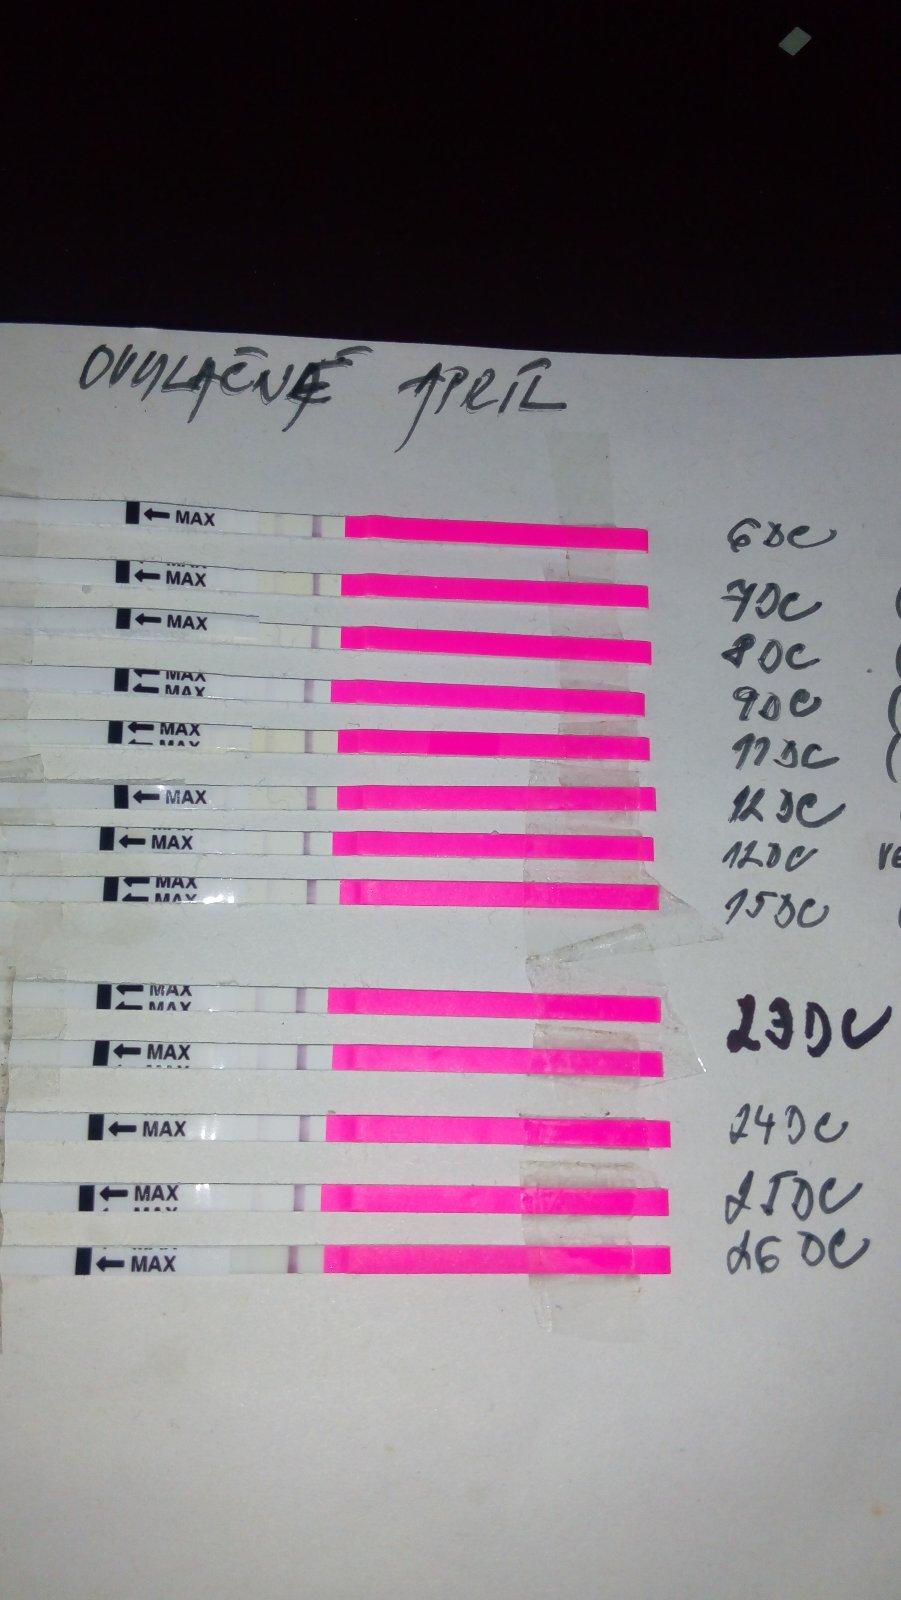 OVULAČNÉ APRÍL
MAX 6DC
MAX 7DC
MAX 8DC
MAX
MAX 9DC
MAX
MAX 11DC
MAX 12DC
MAX 12DC
MAX
MAX 15DC
MAX
MAX 23DC
MAX
MAX 24DC
MAX 25DC
MAX 26DC